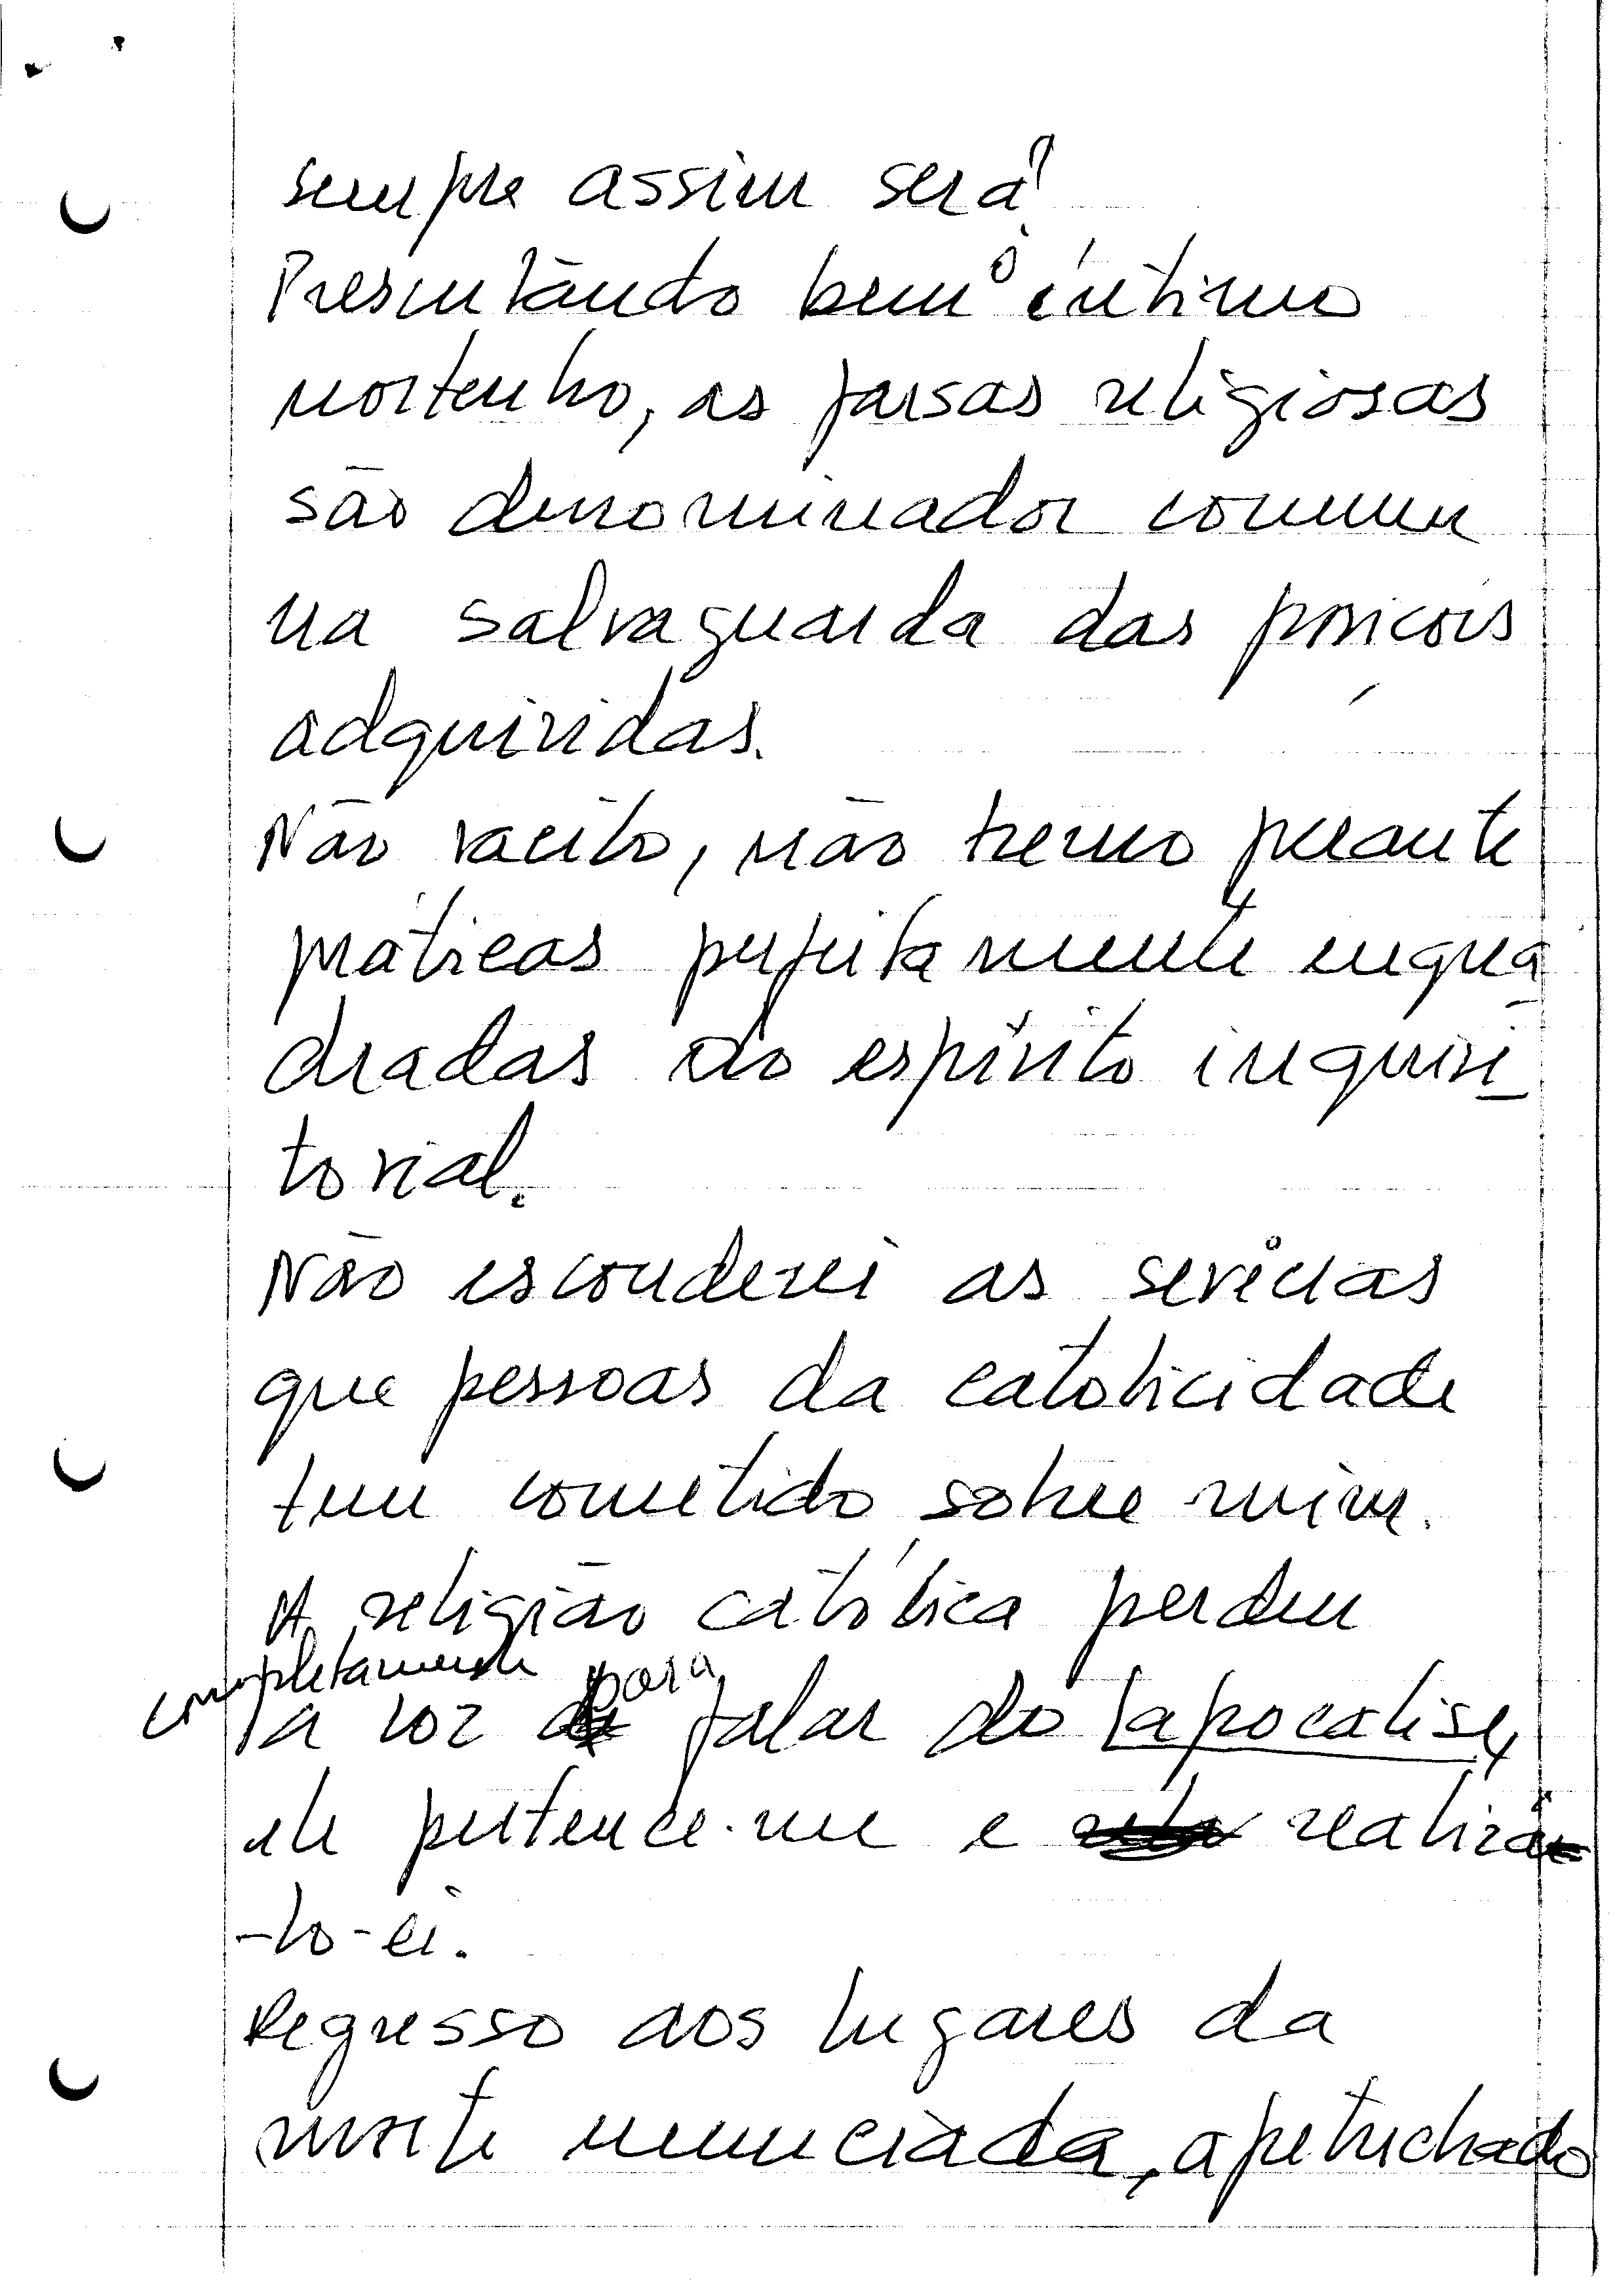 sempre assim será?
Prescutando bem o íntimo
nortenho, as farsas religiosas
são denominador comum
na salvaguarda das posições
adquiridas.
Não vacilo, não tremo perante
práticas perfeitamente enqua-
dradas ao espírito inquisi-
torial.
Não esconderei as sevícias
que pessoas da catolicidade
tem cometido sobre mim.
A religião católica perdeu
completamente para
a voz falar do apocalise,
ele pertence-me e realizá-
-lo-ei.
Regresso aos lugares da
morte renunciada, apetrechado